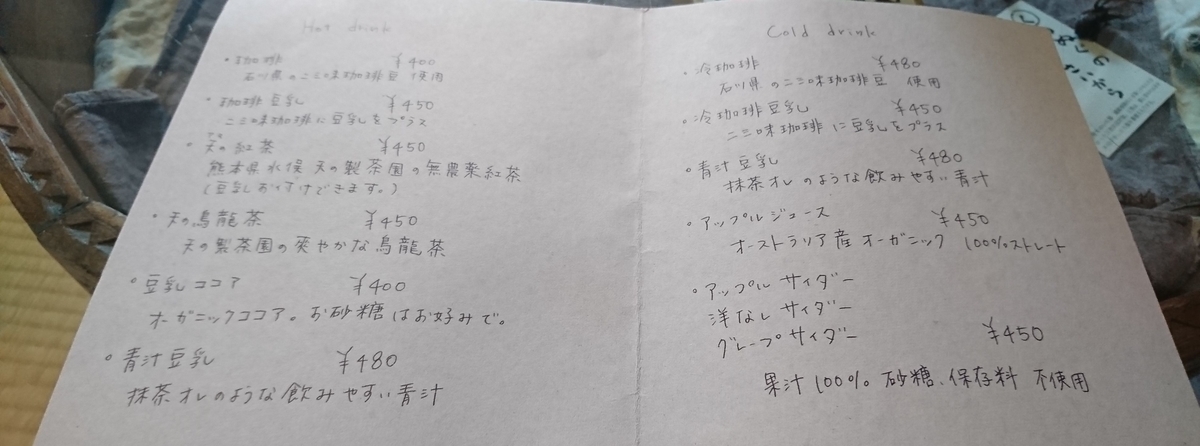 Hot drink
・珈琲 ¥400
石川県の二三味珈琲豆 使用
・珈琲豆乳 ¥450
二三味珈琲に豆乳をプラス
・天の紅茶 ¥450
熊本県水俣 天の製茶園の無農薬紅茶
(豆乳おつけできます。)
・天の烏龍茶 ¥450
天の製茶園の爽やかな烏龍茶
・豆乳ココア ¥400
オーガニックココア。お砂糖はお好みで。
・青汁豆乳 ¥480
抹茶オレのような飲みやすい青汁
Cold drink
・冷珈琲 ¥480
石川県の二三味珈琲豆 使用
・冷珈琲豆乳 ¥450
二三味珈琲に豆乳をプラス
・青汁豆乳 ¥480
抹茶オレのような飲みやすい青汁
・アップルジュース ¥450
オーストラリア産オーガニック 100%ストレート
・アップルサイダー
洋なしサイダー
グレープサイダー ¥450
果汁100% 砂糖、保存料 不使用